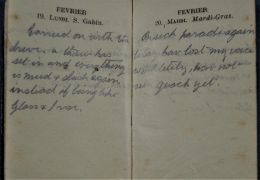 FEVRIER
19. LUNDI. S. Gabin.
Carried on with the
drive, a thaw has
set in and everything
is mud & slush again
instead of being like
Glass &
FEVRIER
20. MARDI. Mardi-Gras.
parade again
have lost my voice
completely, have not
yet.